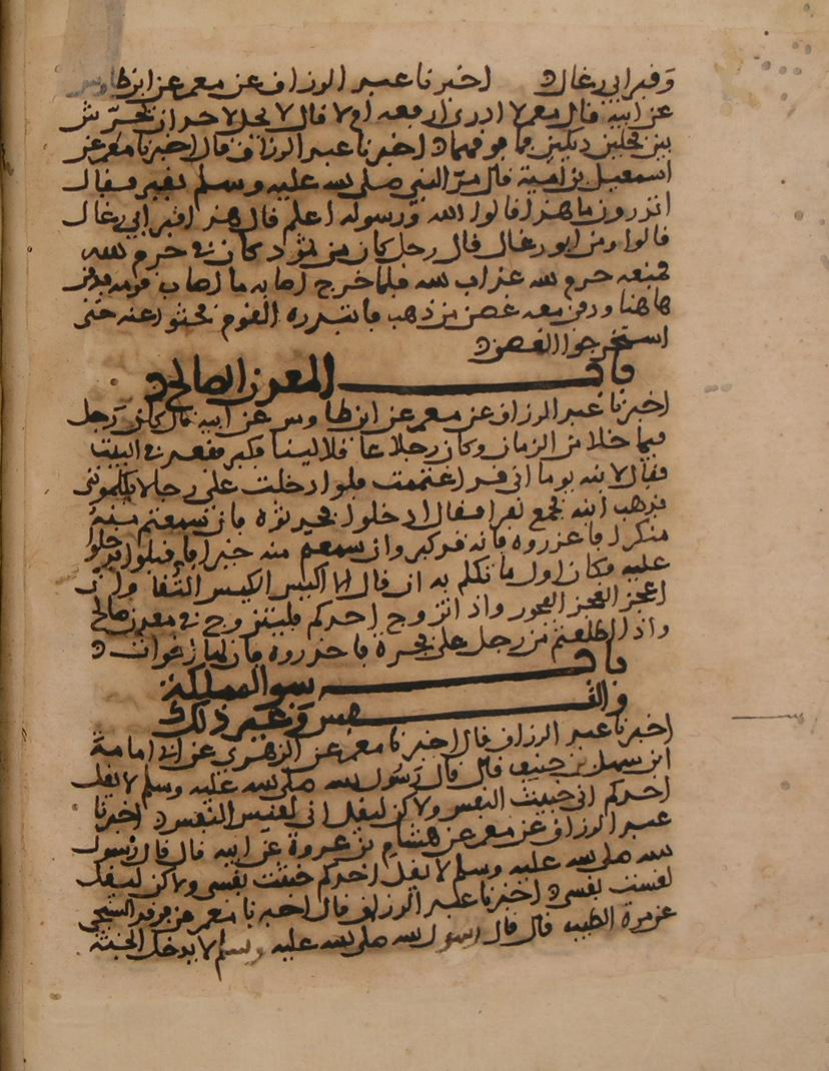 وقبر ابي رغال ه اخبرنا عبد الرزاق عن معمر عن ابن طاوس
عن ابيه قال معمر لا ادري ارفعه ام لا قال لا يحل لاحد ان يحرش
بين فحلين ديكين فما فوقهما ه اخبرنا عبد الرزاق قال اخبرنا معمر عن
اسمعيل بن امية قال مر النبي صلى الله عليه وسلم بقبر فقال
اتدرون ما هذا قالوا الله ورسوله اعلم قال هذا قبر ابي رغال
قالوا ومن ابو رغال قال رجل كان من ثمود كان في حرم الله
فمنعه حرم الله عذاب الله فلما خرج اصابه ما اصاب قومه فدفن
هاهنا ودفن معه غصن من ذهب فابتدره القوم فبحثوا عنه حتى
استخرجوا الغصن ه
باب المعدن الصالح ه
اخبرنا عبد الرزاق عن معمر عن ابن طاوس عن ابيه قال كان رجل
فيما خلا من الزمان وكان رجلا عاقلا لبيبا فكبر فقعد في البيت
فقال لابنه يوما اني قد اغتممت فلو ادخلت علي رجالا يكلموني
فذهب ابنه فجمع نفرا فقال ادخلوا فحدثوه فان سمعتم منه
منكرا فاعذروه فانه قد كبر وان سمعتم منه خيرا فاقبلوا فدخلوا
عليه فكان اول ما تكلم به ان قال الا اكيس الكيس التقا وان
اعجز العجز الفجور واذا تزوج احدكم فليتزوج في معدن صالح
واذا اطلعتم من رجل على فجرة فاحذروه فان لها اخوات ه
باب سو الملكة
والنفس وغير ذلك
اخبرنا عبد الرزاق قال اخبرنا معمر عن الزهري عن ابي امامة
ابن سهل بن حنيف قال قال رسول الله صلى الله عليه وسلم لا يقل
احدكم اني خبيث النفس ولاكن ليقل اني لقس النفس ه اخبرنا
عبد الرزاق عن معمر عن هشام بن عروة عن ابيه قال قال رسول
الله صلى الله عليه وسلم لا يقل احدكم خبثت نفسي ولاكن ليقل
لقست نفسي ه اخبرنا عبد الرزاق قال اخبرنا معمر عن فرقد السبخي
عن مرة الطيب قال قال رسول الله صلى الله عليه وسلم لا يدخل الجنة